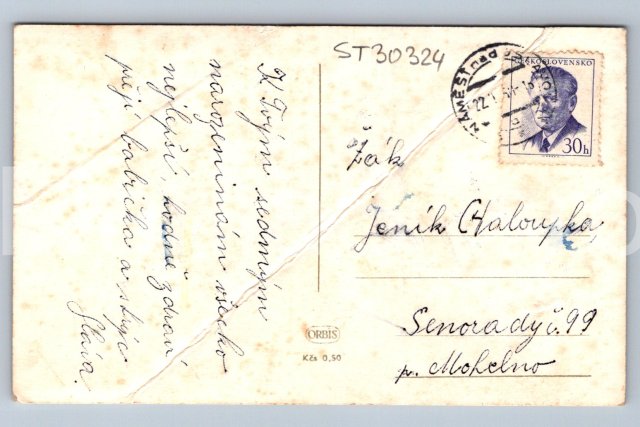 ST30324
K Tvým sedmým
narozeninám všecko
nejlepší, hodně zdraví
přejí babička a strýc
Sláva.
ČESKOSLOVENSKO
30h
NÁMĚŠŤ
22.
Žák
Jeník Chaloupka,
Senorady č. 99
p. Mohelno
ORBIS
Kčs 0,50